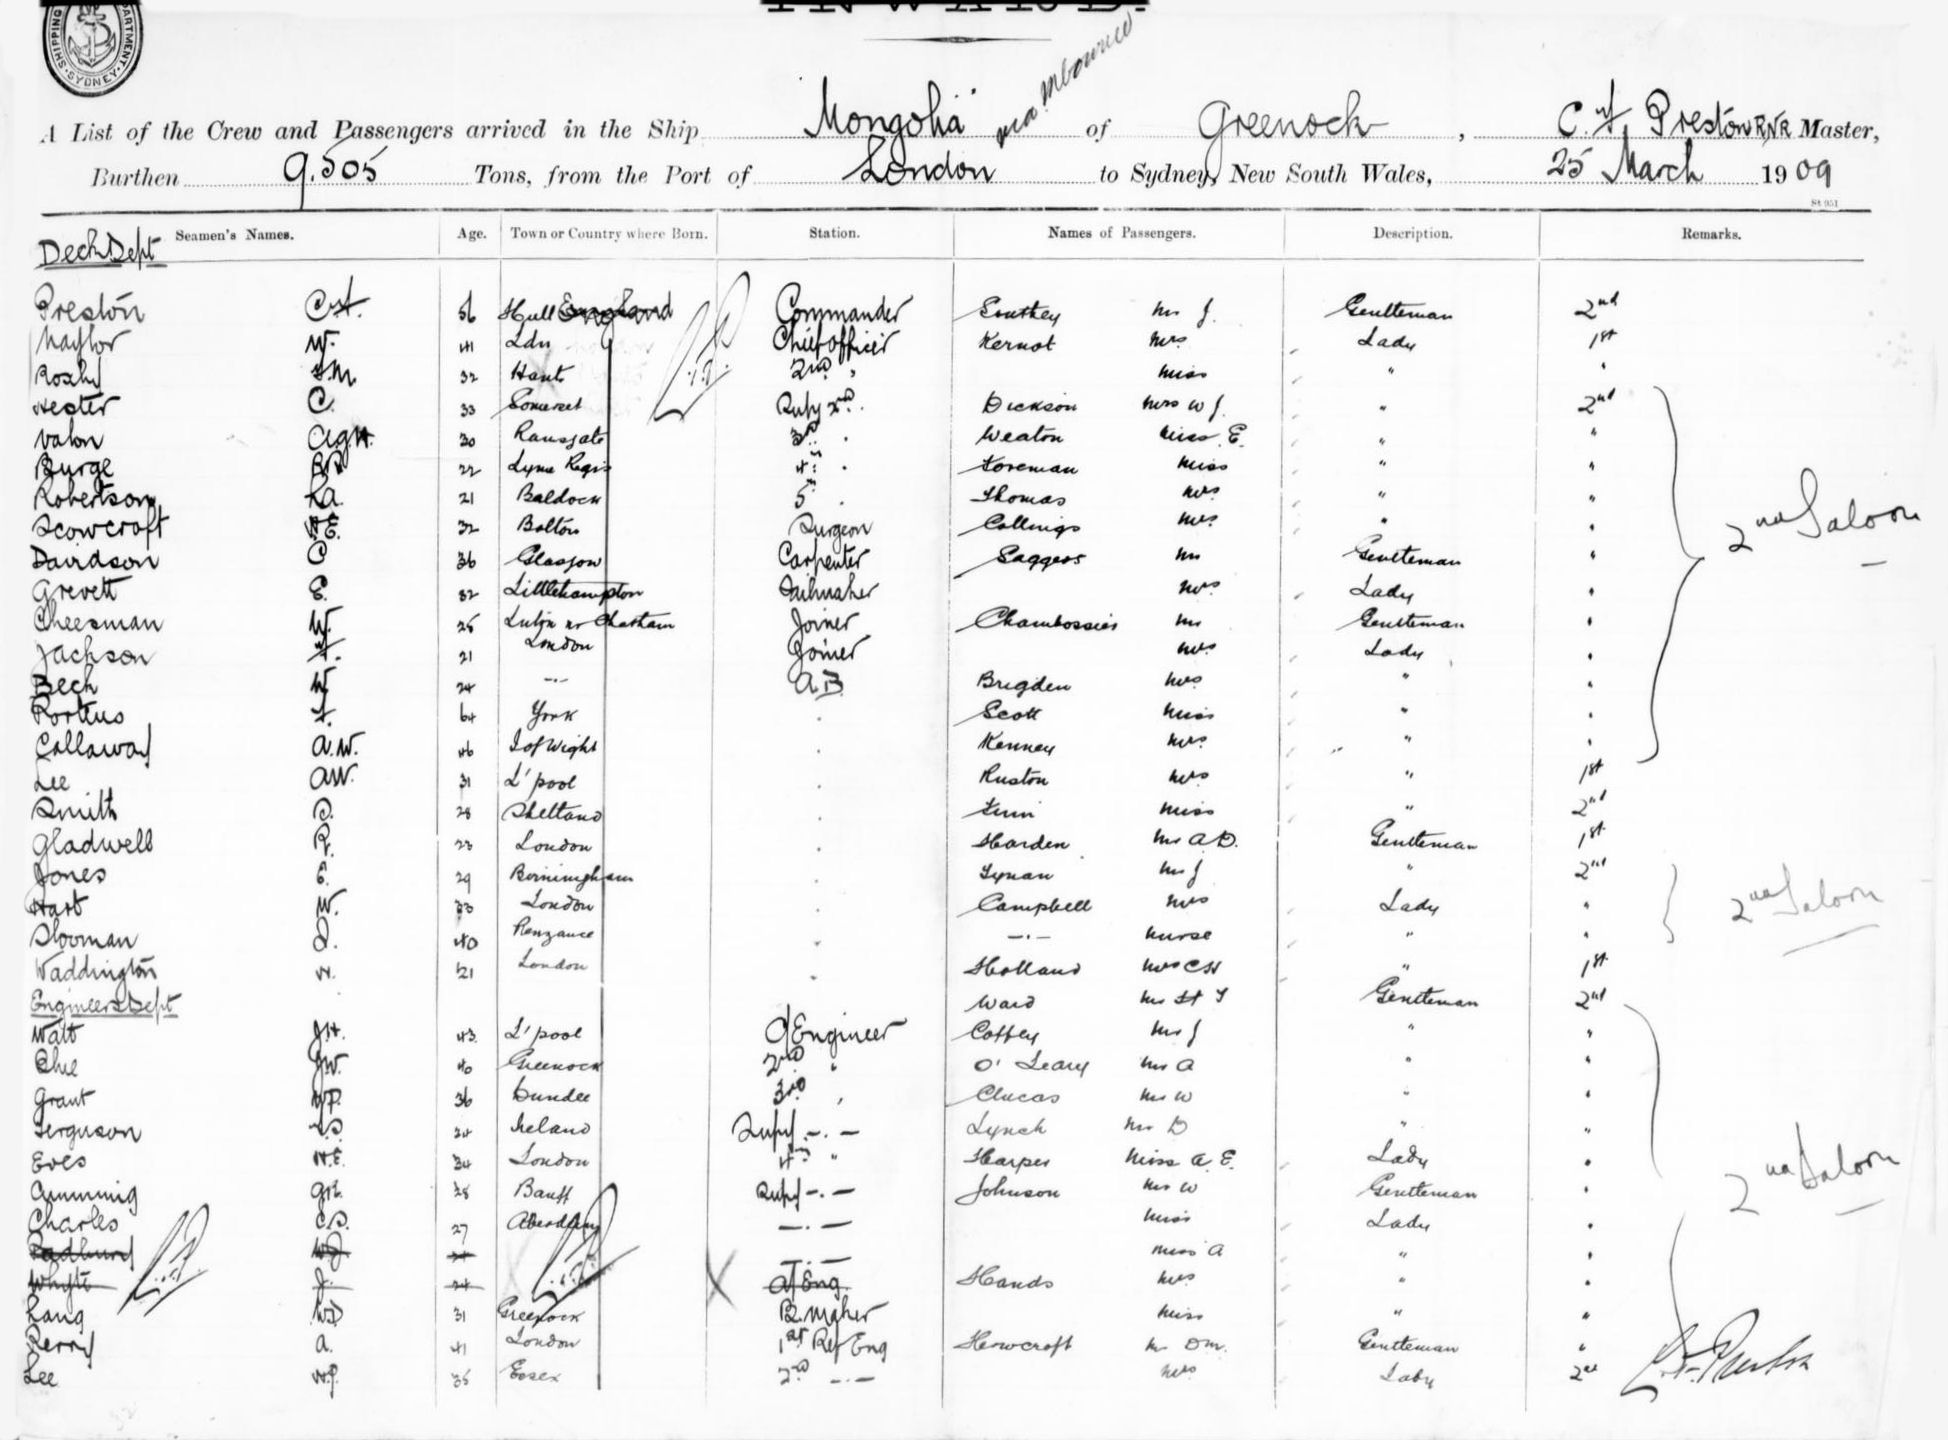 INWARD.
SHIPPING DEPARTMENT SYDNEY
via Melbourne
A List of the Crew and Passengers arrived in the Ship Mongolia of Greenock, C. Preston RNR Master,
Burthen 9.505 Tons, from the Port of London to Sydney, New South Wales, 25 March 1909
St 951
Seamen's Names. Age. Town or Country where Born. Station. Names of Passengers. Description. Remarks.
Deck Dept
Preston 56 Hull England Commander Southey Mr J. Gentleman 2nd
Naylor W. 41 Ldn Chief officer Kernot Mrs Lady 1st
Roxby 32 Hants 2nd " Miss " "
Hester C. 33 Somerset Supy 2nd Dickson Mrs W J. " 2nd
Valon 30 Ramsgate 3rd " Weaton Miss E. " "
Burge 22 Lyme Regis 4th " Foreman Miss " "
Robertson 21 Baldock 5th " Thomas Mrs " "
2nd Saloon
Scowcroft H.E. 32 Bolton Surgeon Collings Mrs " "
Davidson C 36 Glasgow Carpenter Saggers Mr Gentleman "
Grevett E. 32 Littlehampton Sailmaker Mrs Lady "
Cheesman W. 25 Chatham Joiner Mr Gentleman "
Jackson 21 London Joiner Mrs Lady "
Beck W 24 -"- A.B. Brigden Mrs " "
Porteus 64 York " Scott Miss " "
Callaway A.W. 46 I of Wight " Kenney Mrs " "
Lee A.W. 31 L'pool " Ruston Mrs " 1st
Smith 28 Shetland " Miss " 2nd
Gladwell R. 23 London " Harden Mr A.D. Gentleman 1st
Jones E. 29 Birmingham " Mr J " 2nd
Hart W. 33 London " Campbell Mrs Lady "
2nd Saloon
Slooman 40 Penzance " -"- Nurse " "
Waddington H. 21 London " Holland Mrs C H " 1st
Engineers Dept Ward Mr Gentleman 2nd
Watt J.H. 43 L'pool C/Engineer Coffey Mr J " "
J.W. 40 Greenock 2nd " O'Leary Mr A " "
Grant W.P. 36 Dundee 3rd " Clucas Mr W " "
Ferguson 34 Ireland Supy -"- Lynch Mr D " "
Eves H.E. 34 London 4th " Harper Miss A. E. Lady "
2nd Saloon
Cumming 28 Banff Supy -"- Johnson Mr W Gentleman "
Charles C.S. 27 Aberdeen -"- Miss Lady "
Padbury -"- Miss A " "
Whyte J. 24 A/Eng Hands Mrs " "
Lang W.D 31 Greenock B. maker Miss " "
Perry A. 41 London 1st Ref Eng Howcroft Mr D M. Gentleman "
Lee H.J. 35 Essex 2nd -"- Mrs Lady 2nd